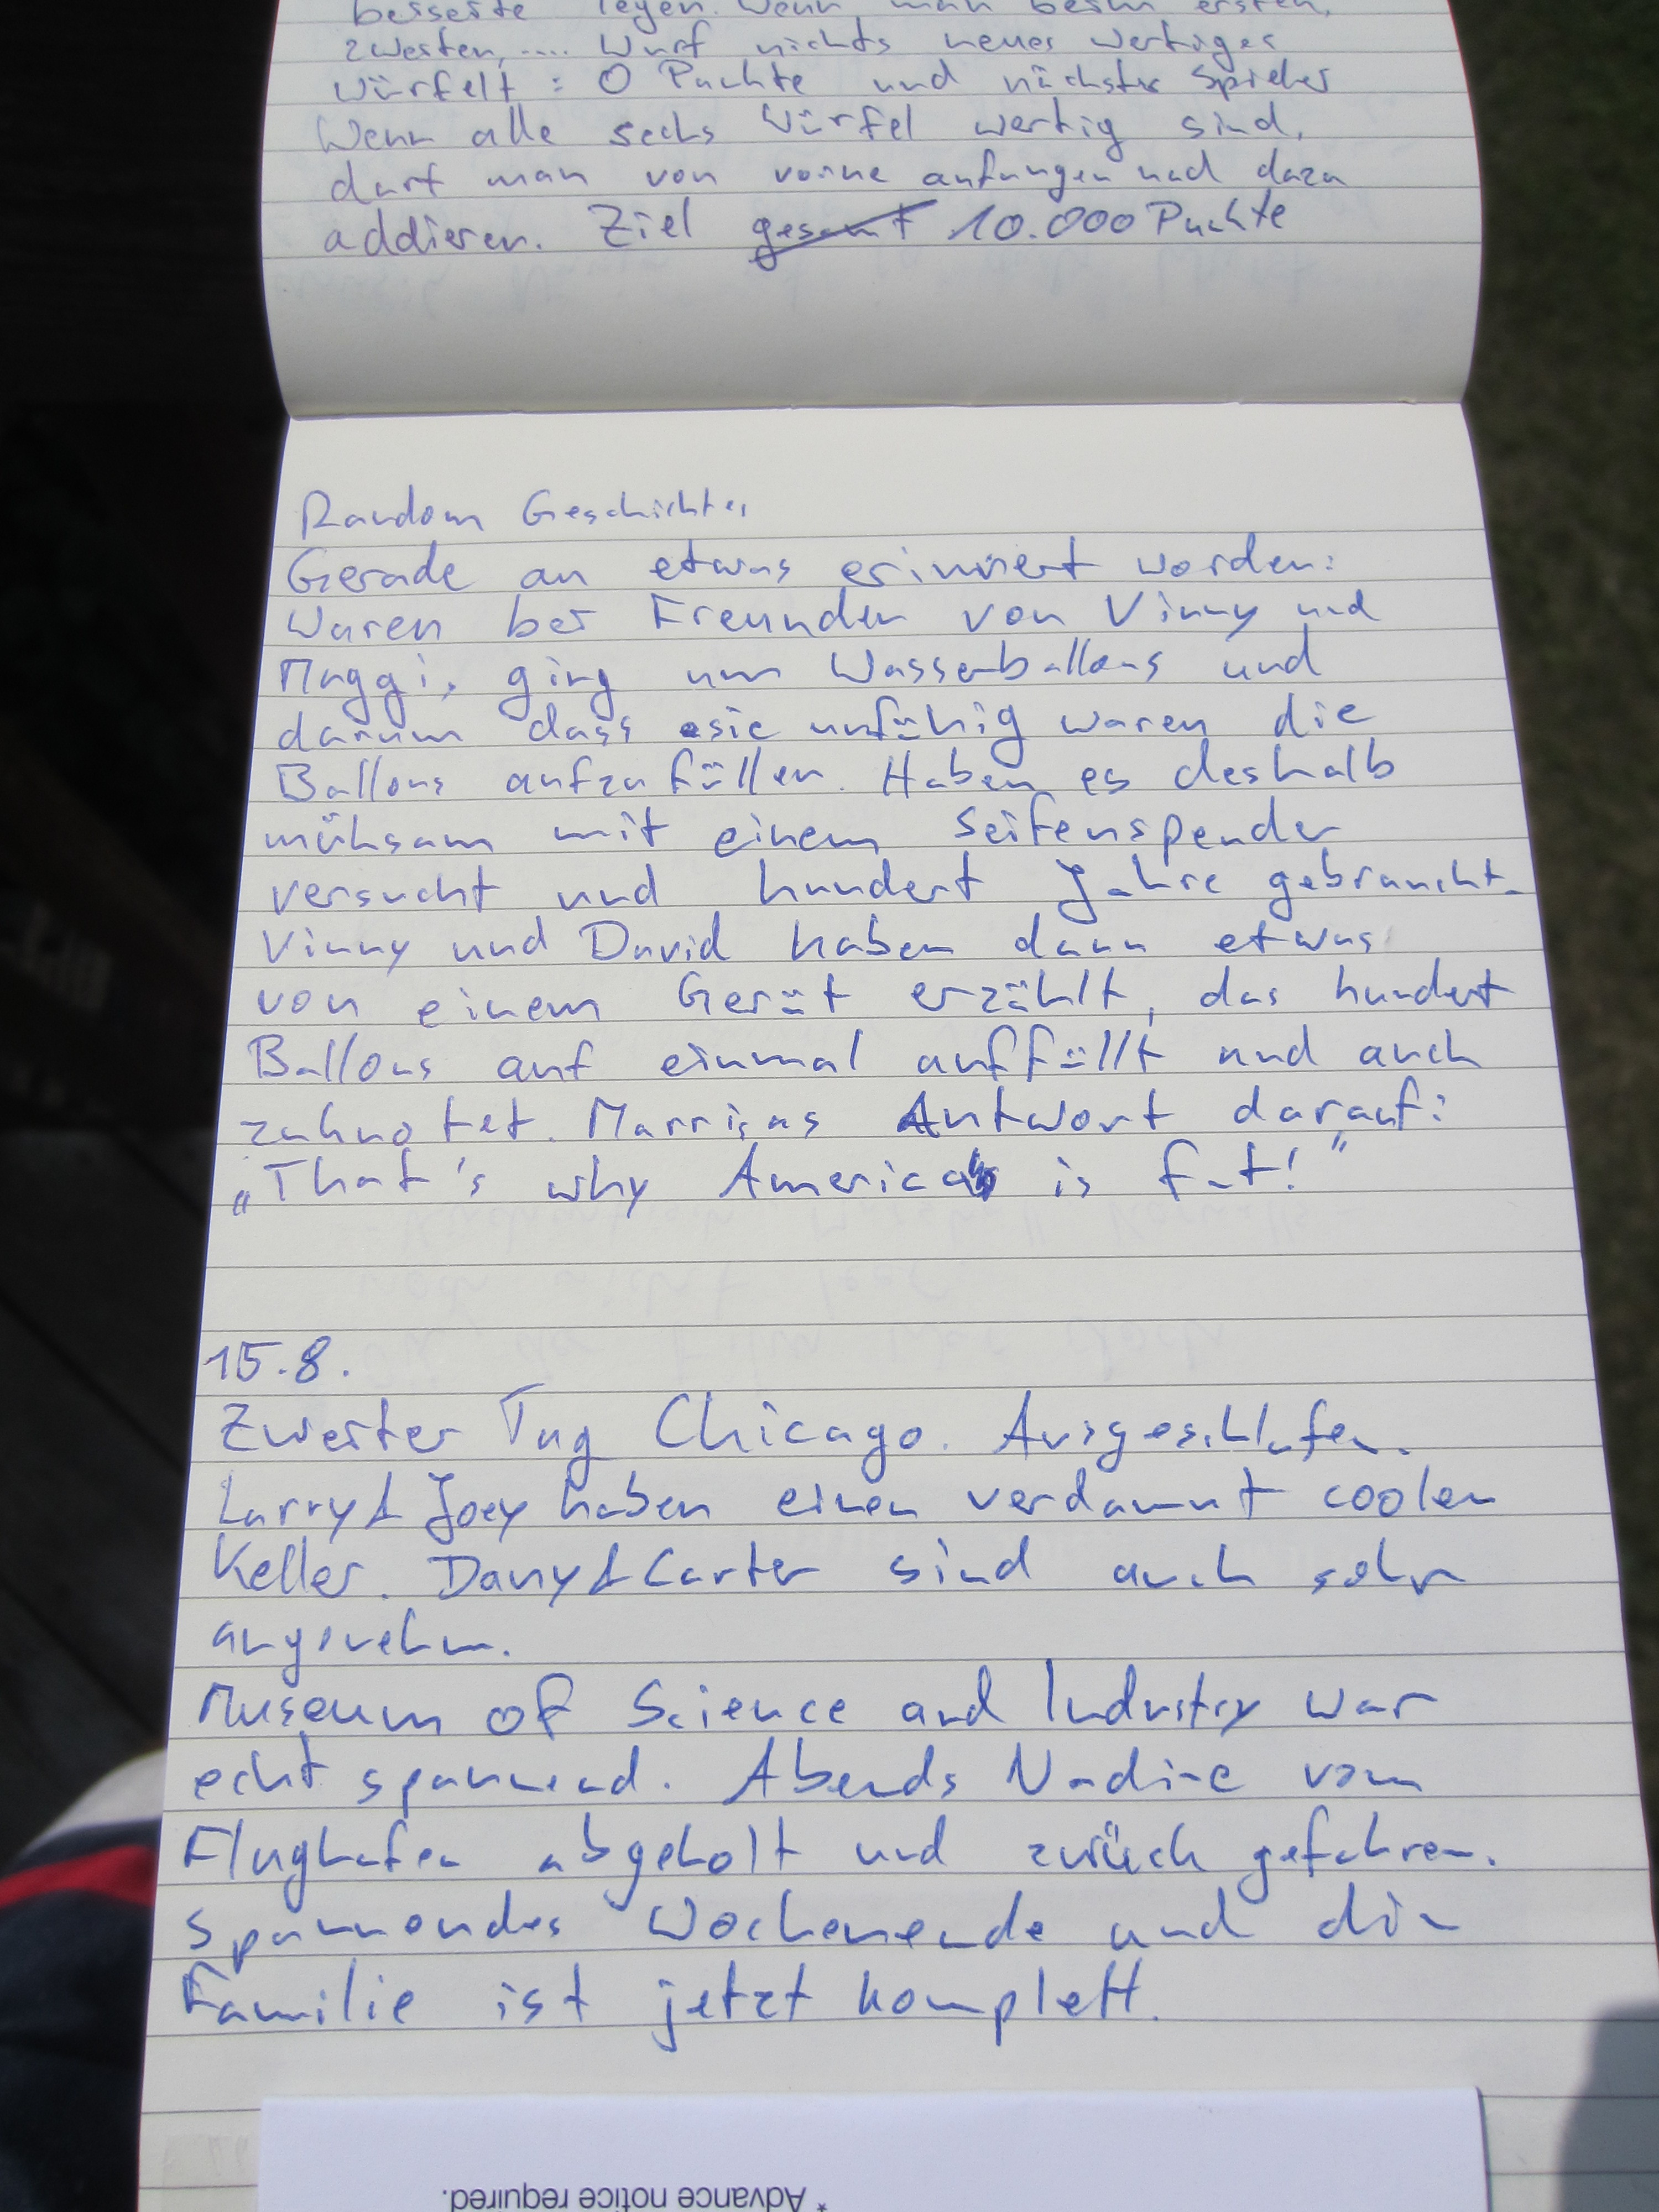 beiseite legen. Wenn man beim ersten,
zweiten, .... Wurf nichts neues wertiges
würfelt : 0 Punkte und nächster Spieler
Wenn alle sechs Würfel wertig sind,
darf man von vorne anfangen und dazu
addieren. Ziel gesamt 10.000 Punkte
Random Geschichte,
Gerade an etwas erinnert worden:
Waren bei Freunden von Vinny und
Maggi, ging um Wasserballons und
darum dass sie unfähig waren die
Ballons aufzufüllen. Haben es deshalb
mühsam mit einem Seifenspender
versucht und hundert Jahre gebraucht.
Vinny und David haben dann etwas
von einem Gerät erzählt, das hundert
Ballons auf einmal auffüllt und auch
zuknotet. Marrisas Antwort darauf:
„That's why America is fat!"
15.8.
Zweiter Tag Chicago. Ausgeschlafen.
Larry & Joey haben einen verdammt coolen
Keller. Dany & Carter sind auch sehr
angenehm.
Museum of Science and Industry war
echt spannend. Abends Nadine vom
Flughafen abgeholt und zurück gefahren.
Spannendes Wochenende und die
Familie ist jetzt komplett.
* Advance notice required.